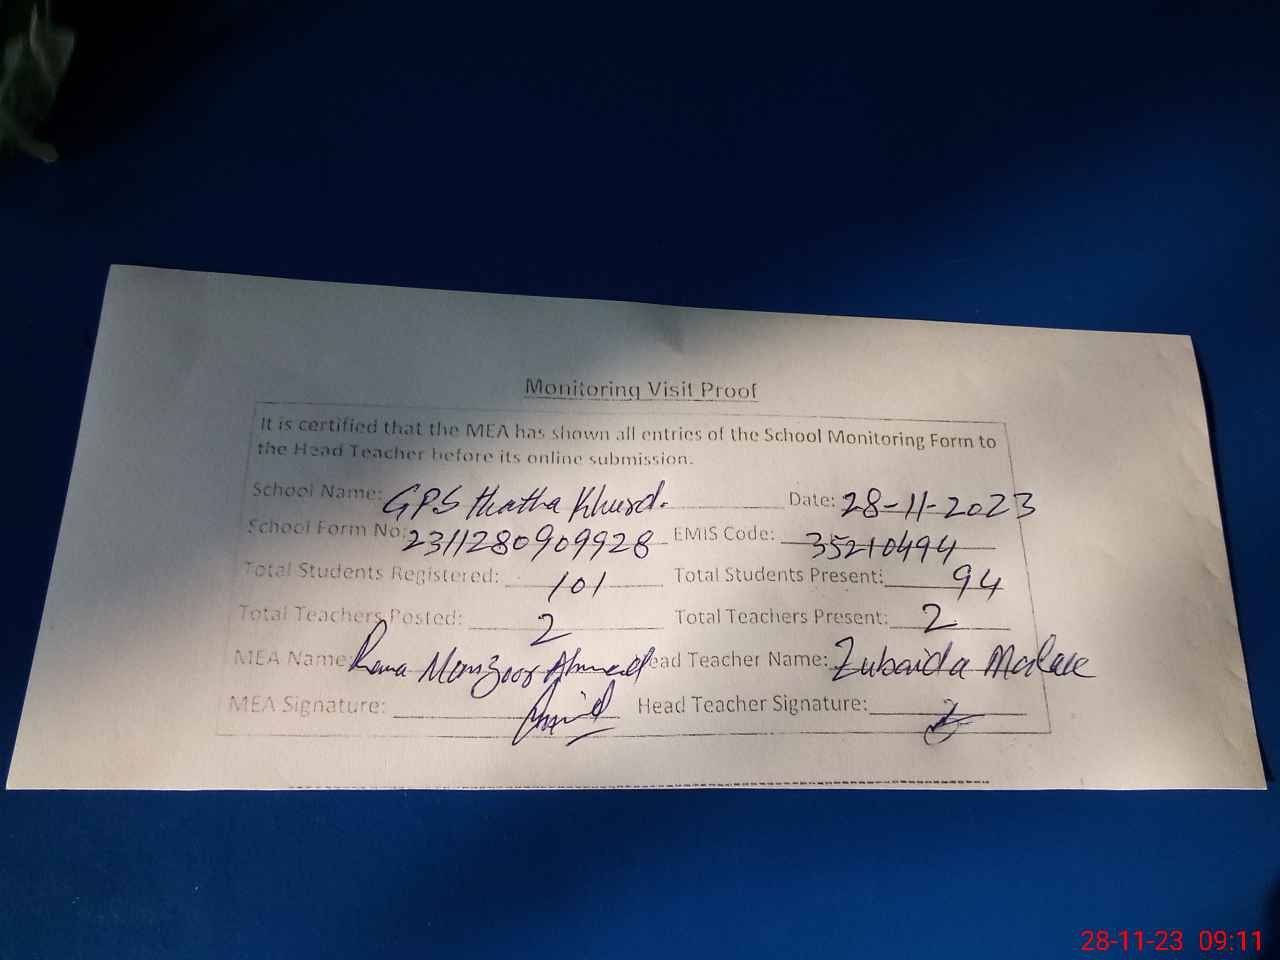 Monitoring Visit Proof
It is certified that the MEA has shown all entries of the School Monitoring Form to
the Head Teacher before its online submission.
School Name: GPS thatha Khurd. Date: 28-11-2023
School Form No: 2311280909928 EMIS Code: 35210494
Total Students Registered: 101 Total Students Present: 94
Total Teachers Posted: 2 Total Teachers Present: 2
MEA Name: Rana Manzoor Ahmed Head Teacher Name: Zubaida Malik
MEA Signature: Head Teacher Signature:
28-11-23 09:11